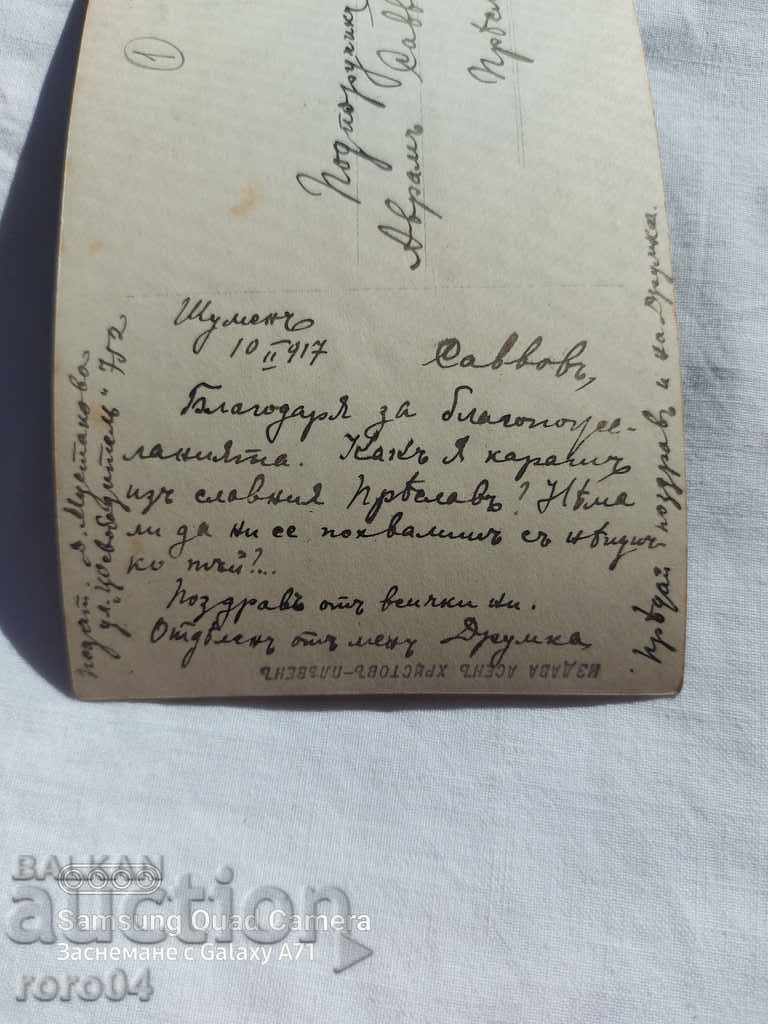 1
Подпоручикъ
Аврамъ Савв
Прѣсл
Шуменъ
10 II 917
Саввовъ,
Благодаря за благопоже-
ланията. Какъ я карашъ
изъ славния Прѣславъ? Нѣма
ли да ни се похвалишъ съ нѣщич-
ко тъй?...
Поздравъ отъ всички ни.
Отдѣленъ отъ менъ Друмка
Прѣдай поздравъ и на Друмка.
Подпт. Д. Мустакова
ул. „Цоевободитель“ 752
ИЗДАВА АСЕНЪ ХРИСТОВЪ-ПЛѢВЕНЪ
BALKAN
auction
Samsung Quad Camera
Заснемане с Galaxy A71
roro04